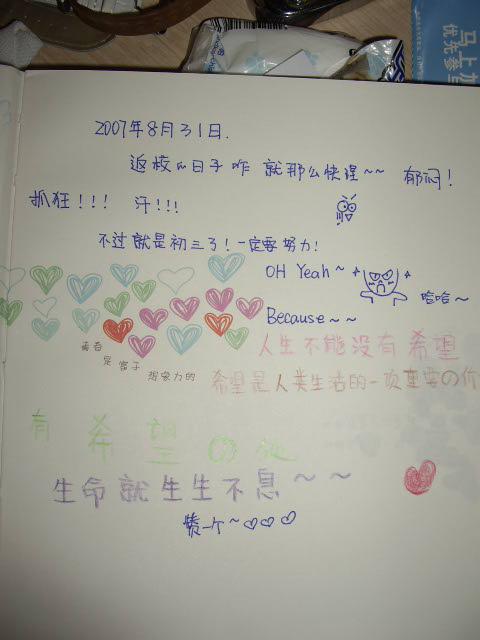 马上加
优先参与
2007年8月31日.
返校の日子咋就那么快捏~~ 郁闷!
抓狂!!! 汗!!!
不过就是初三了!一定要努力!
OH Yeah~
哈哈~
Because~~
人生不能没有希望
青春
是富于
想象力的
希望是人类生活的一项重要の价
有希望の
生命就生生不息~~
赞一个~♡♡♡